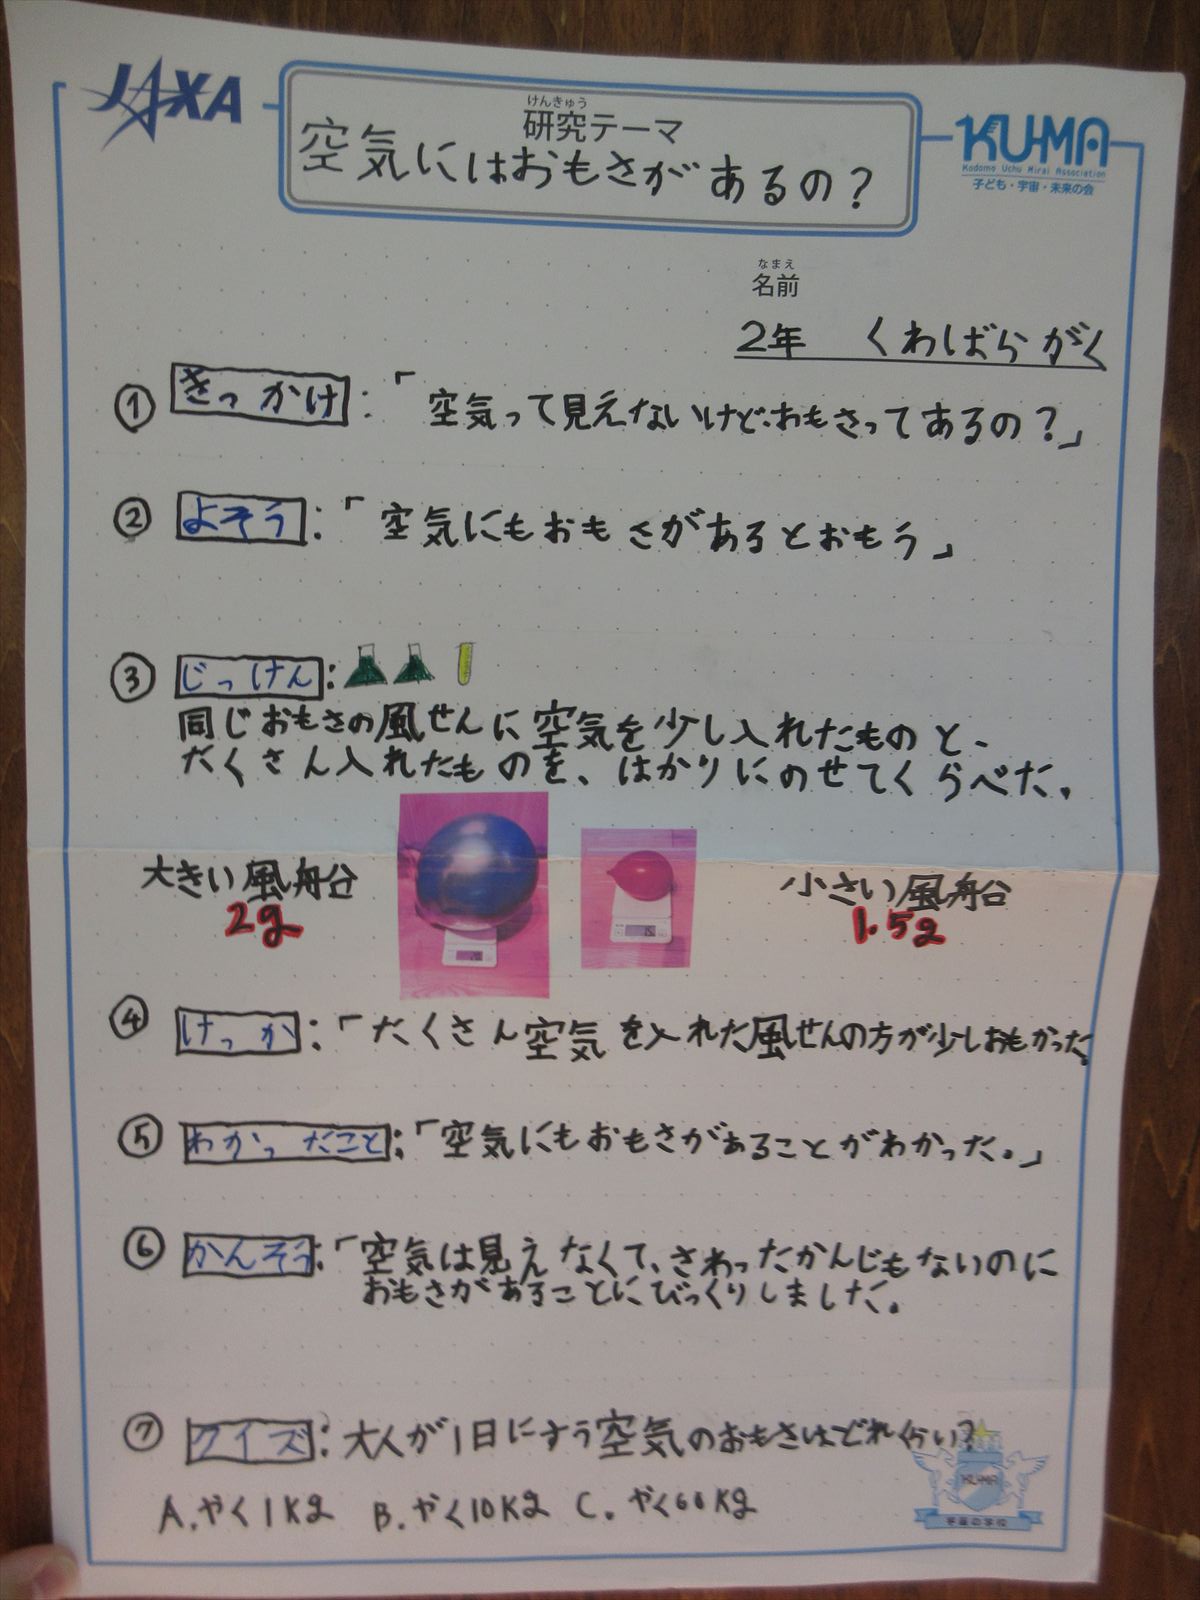 JAXA
けんきゅう
研究テーマ
空気にはおもさがあるの?
KU-MA
Kodomo Uchu Mirai Association
子ども・宇宙・未来の会
なまえ
名前
2年 くわばらがく
① きっかけ:「空気って見えないけど、おもさってあるの?」
② よそう:「空気にもおもさがあるとおもう」
③ じっけん:
同じおもさの風せんに空気を少し入れたものと、
たくさん入れたものを、はかりにのせてくらべた。
大きい風船
2g
小さい風船
1.5g
④ けっか:「たくさん空気を入れた風せんの方が少しおもかった
⑤ わかったこと:「空気にもおもさがあることがわかった。」
⑥ かんそう:「空気は見えなくて、さわったかんじもないのに
おもさがあることにびっくりしました。
⑦ クイズ:大人が1日にすう空気のおもさはどれくらい?
A.やく1kg B.やく10kg C.やく60kg
KU-MA
宇宙の学校